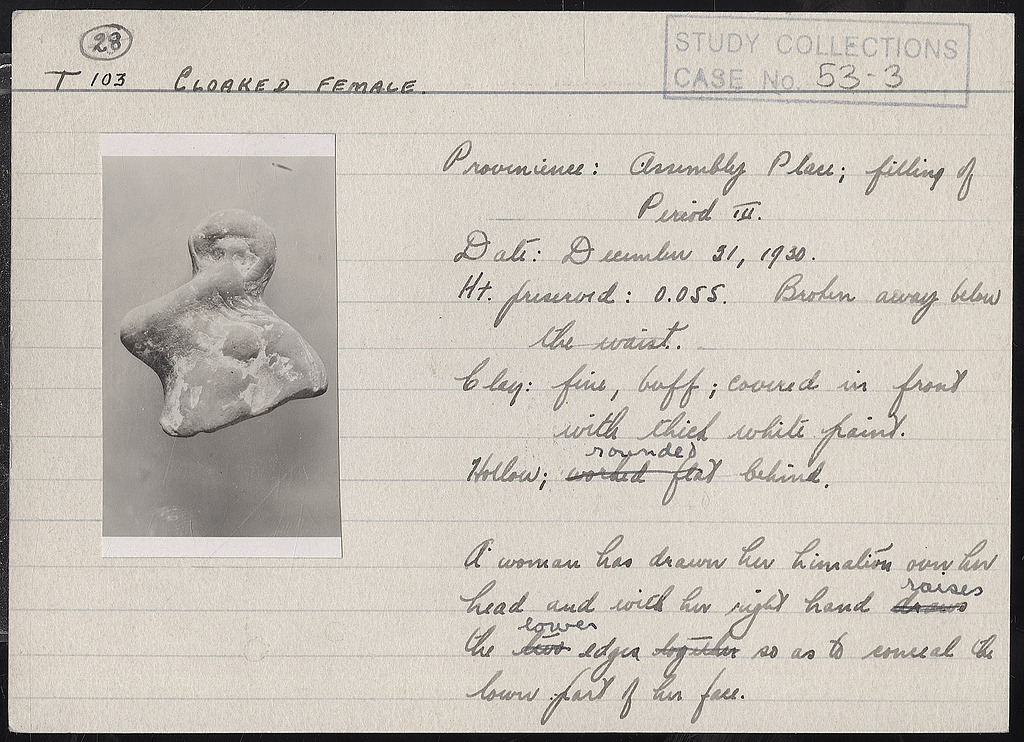 28
STUDY COLLECTIONS
CASE No. 53-3
T 103 CLOAKED FEMALE.
Provenience: Assembly Place; filling of
Period III.
Date: December 31, 1930.
Ht. preserved: 0.055. Broken away below
the waist.
Clay: fine, buff; covered in front
with thick white paint.
rounded
Hollow; worked flat behind.
A woman has drawn her himation over her
raises
head and with her right hand draws
lower
the two edges together so as to conceal the
lower part of her face.